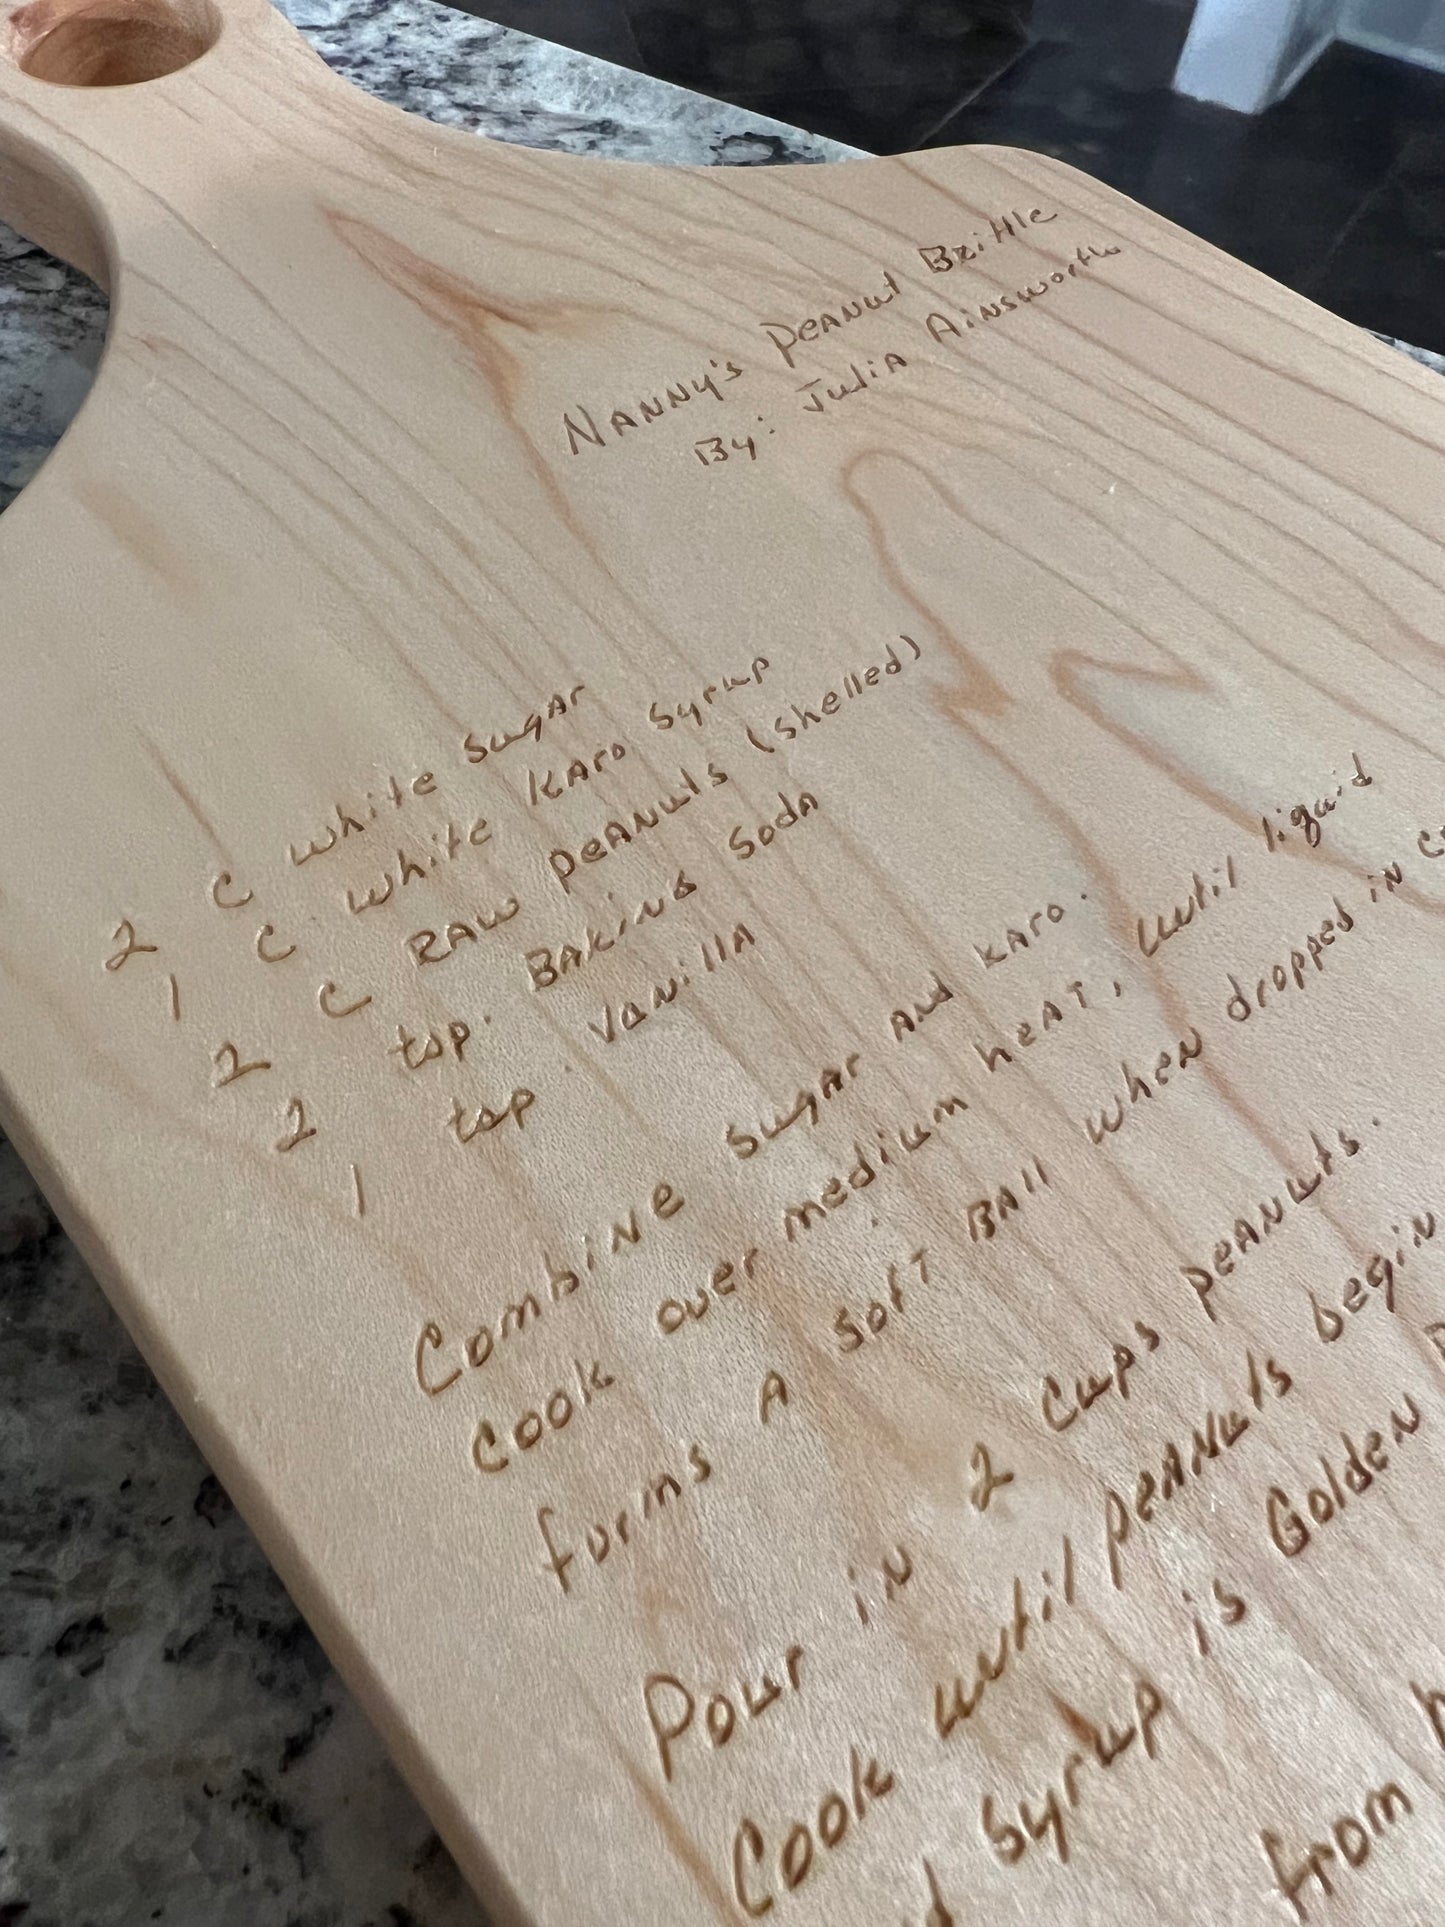 Nanny's Peanut Brittle
By: Julia Ainsworth
2 C white sugar
1 C white Karo Syrup
2 C RAW peanuts (shelled)
2 tsp. Baking Soda
1 tsp. Vanilla
Combine sugar and karo.
Cook over medium heat, until liquid
forms a soft Ball when dropped in
Pour in 2 cups peanuts.
Cook until peanuts begin
syrup is Golden
from